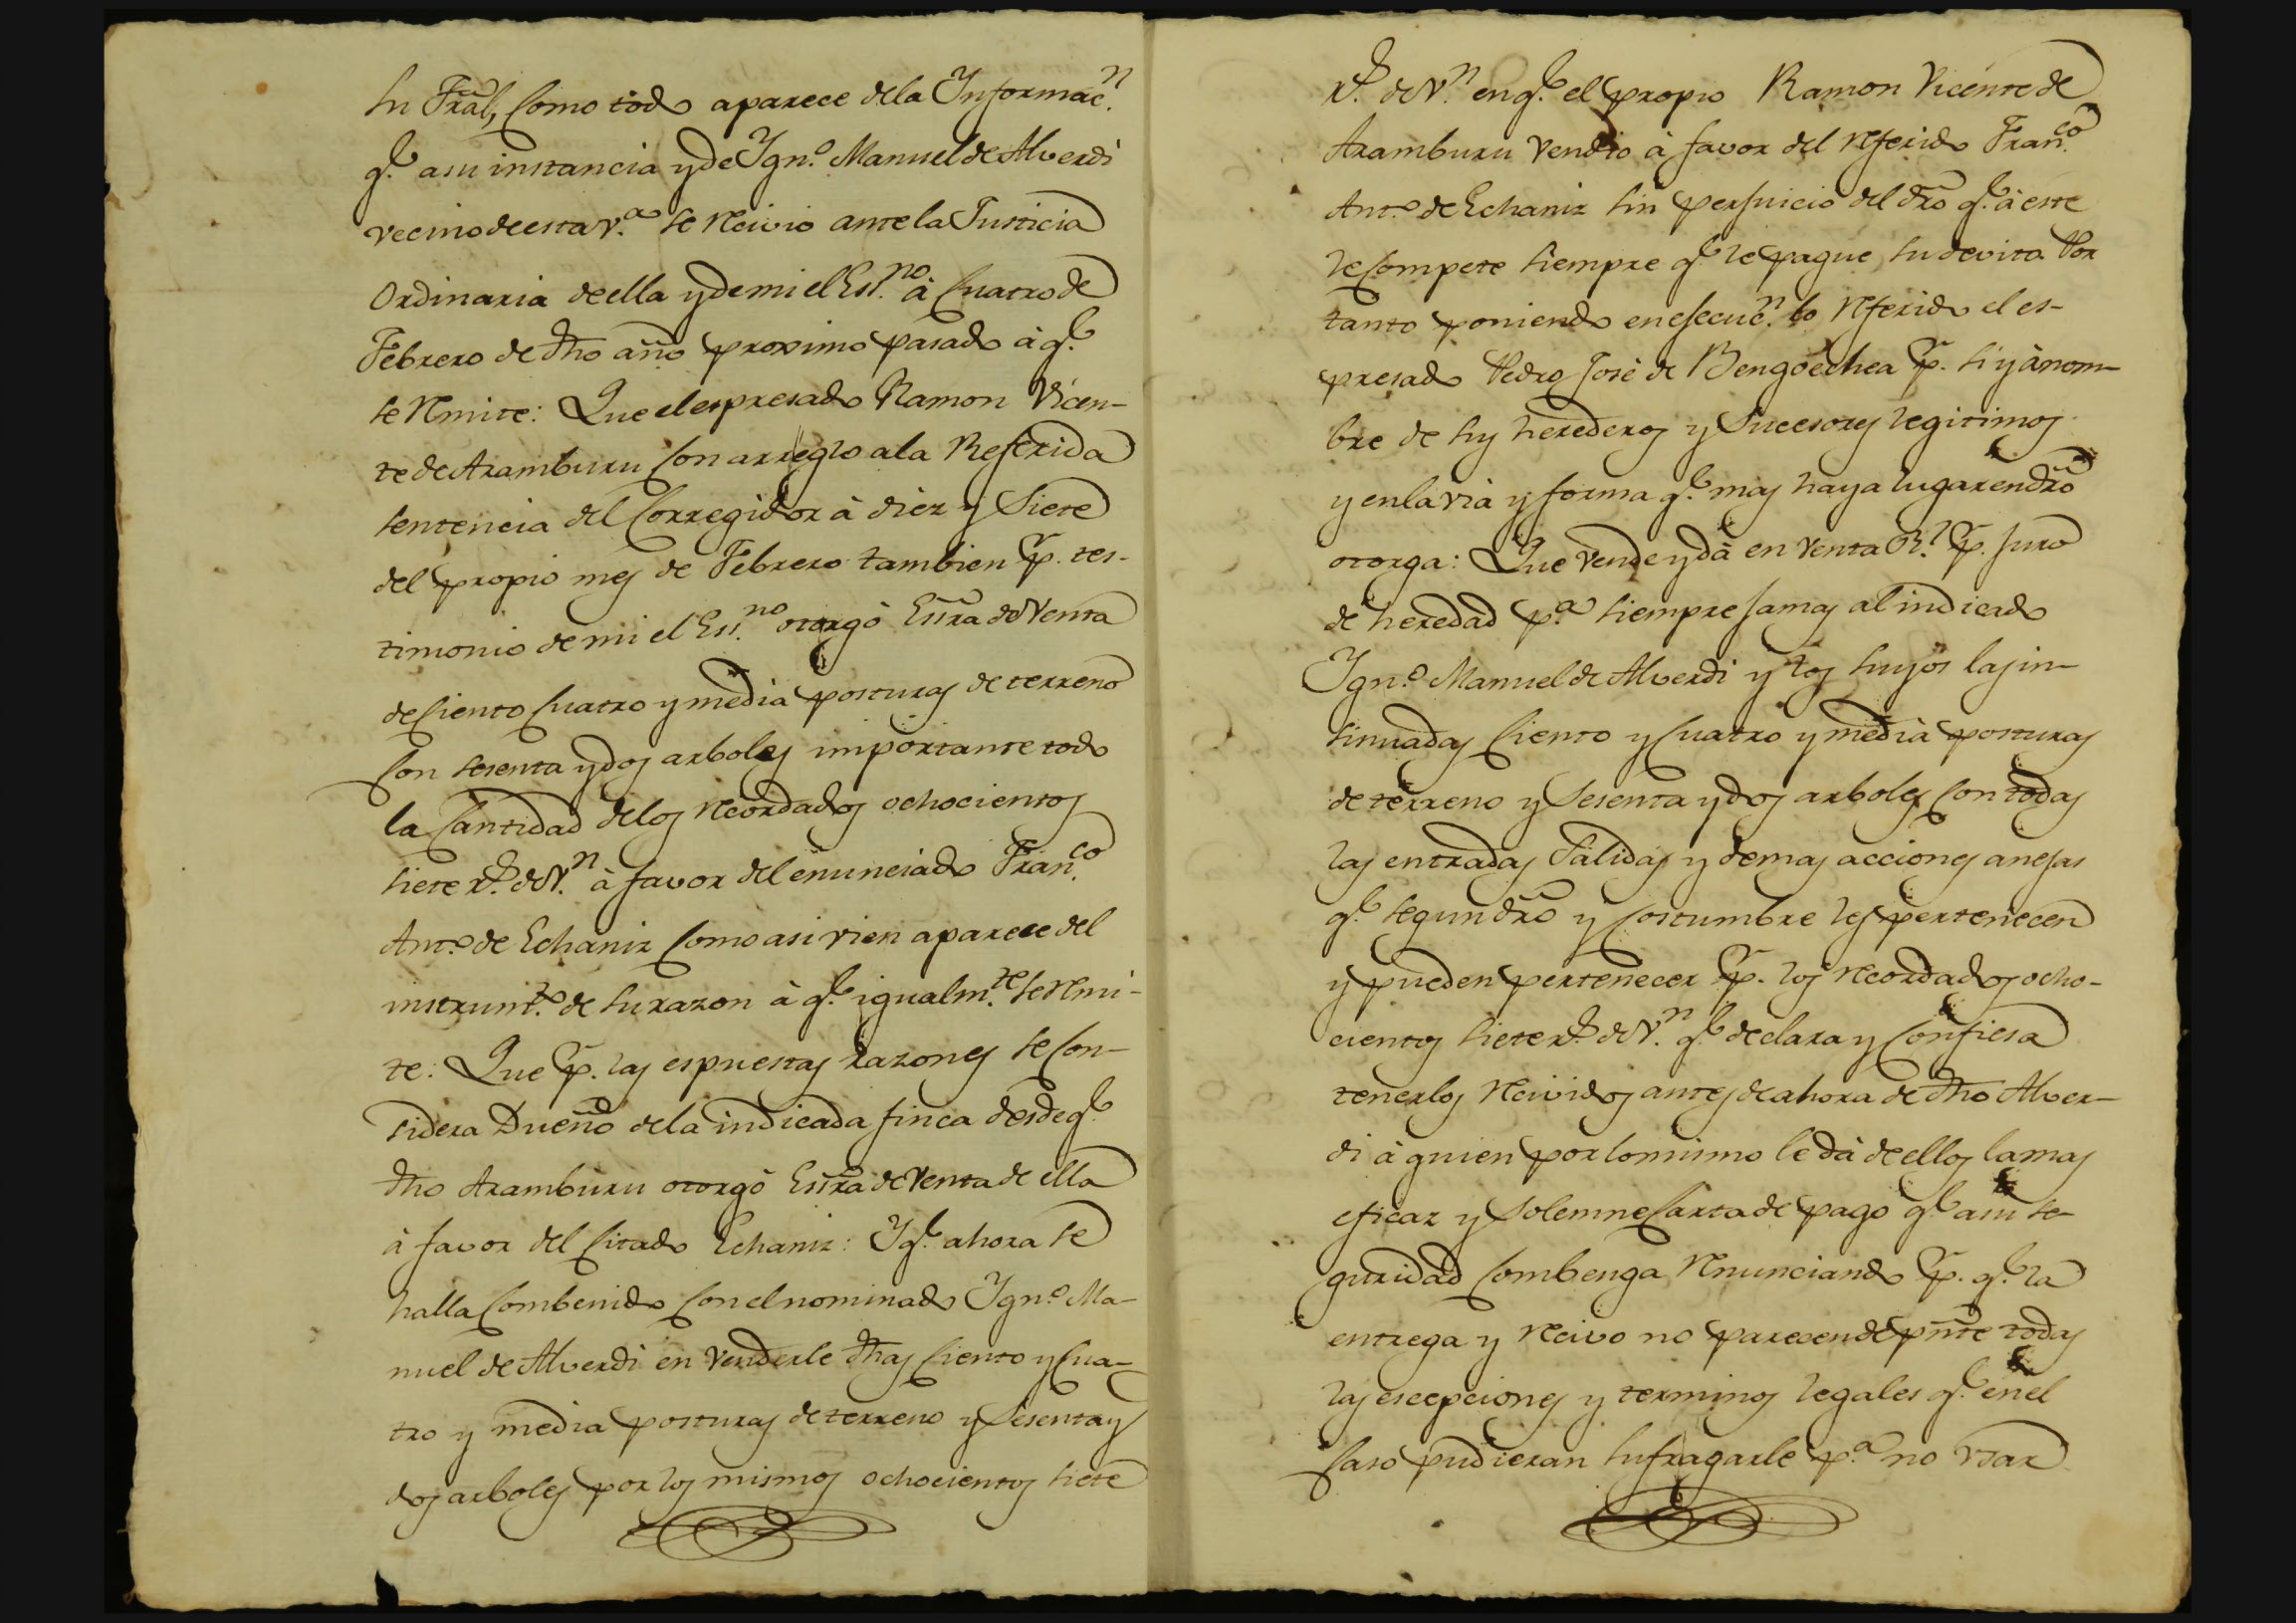 su Tral, como todo aparece dela Ynformac.n
q.e asu instancia y de Ygn.o Manuel de Alverdi
vecino de esta V.a se recivio ante la Justicia
Ordinaria de ella y de mi el Ess.no à cuatro de
Febrero de dho año proximo pasado à q.e
se remite: Que el espresado Ramon Vicen-
te de Aramburu con arreglo a la Referida
sentencia del Corregidor à diez y siete
del propio mes de Febrero tambien p.r tes-
timonio de mi el Ess.no otorgò Essra de Venta
de ciento cuatro y media posturas de terreno
con sesenta y dos arboles importante todo
la cantidad delos recordados ochocientos
siete r.s de V.n à favor del enunciado Fran.co
Ant.o de Echaniz como asi vien aparece del
instrum.to de su razon à q.e igualm.te se remi-
te: Que p.r las espuestas razones se con-
sidera Dueño dela indicada finca desde q.e
dho Aramburu otorgò Essra de Venta de ella
à favor del citado Echaniz: Y q.e ahora se
halla combenido con el nominado Ygn.o Ma-
nuel de Alverdi en venderle dhas ciento y cua-
tro y media posturas de terreno y sesenta y
dos arboles por los mismos ochocientos siete
r.s de V.n en q.e el propio Ramon Vicente de
Aramburu vendio à favor del referido Fran.co
Ant.o de Echaniz sin perjuicio del dro q.e à este
le compete siempre q.e le pague su devito. Por
tanto poniendo en ejecuc.n lo referido el es-
presado Pedro José de Bengoechea p.r si y à nom-
bre de sus herederos y sucesores legitimos
y en la via y forma q.e mas haya lugar en dro
otorga: Que vende y dà en venta R.l p.r juro
de heredad p.a siempre jamas al indicado
Ygn.o Manuel de Alverdi y los suyos las in-
sinuadas ciento y cuatro y media posturas
de terreno y sesenta y dos arboles con todas
las entradas salidas y demas acciones anejas
q.e segun dro y costumbre les pertenecen
y pueden pertenecer p.r los recordados ocho-
cientos siete r.s de V.n q.e declara y confiesa
tenerlos recividos antes de ahora de dho Alver-
di à quien por lo mismo le dà de ellos la mas
eficaz y solemne carta de pago q.e a su se-
guridad combenga renunciando p.r q.e la
entrega y recivo no parecen de pnte todas
las escepciones y terminos legales q.e en el
caso pudieran sufragarle p.a no vsar